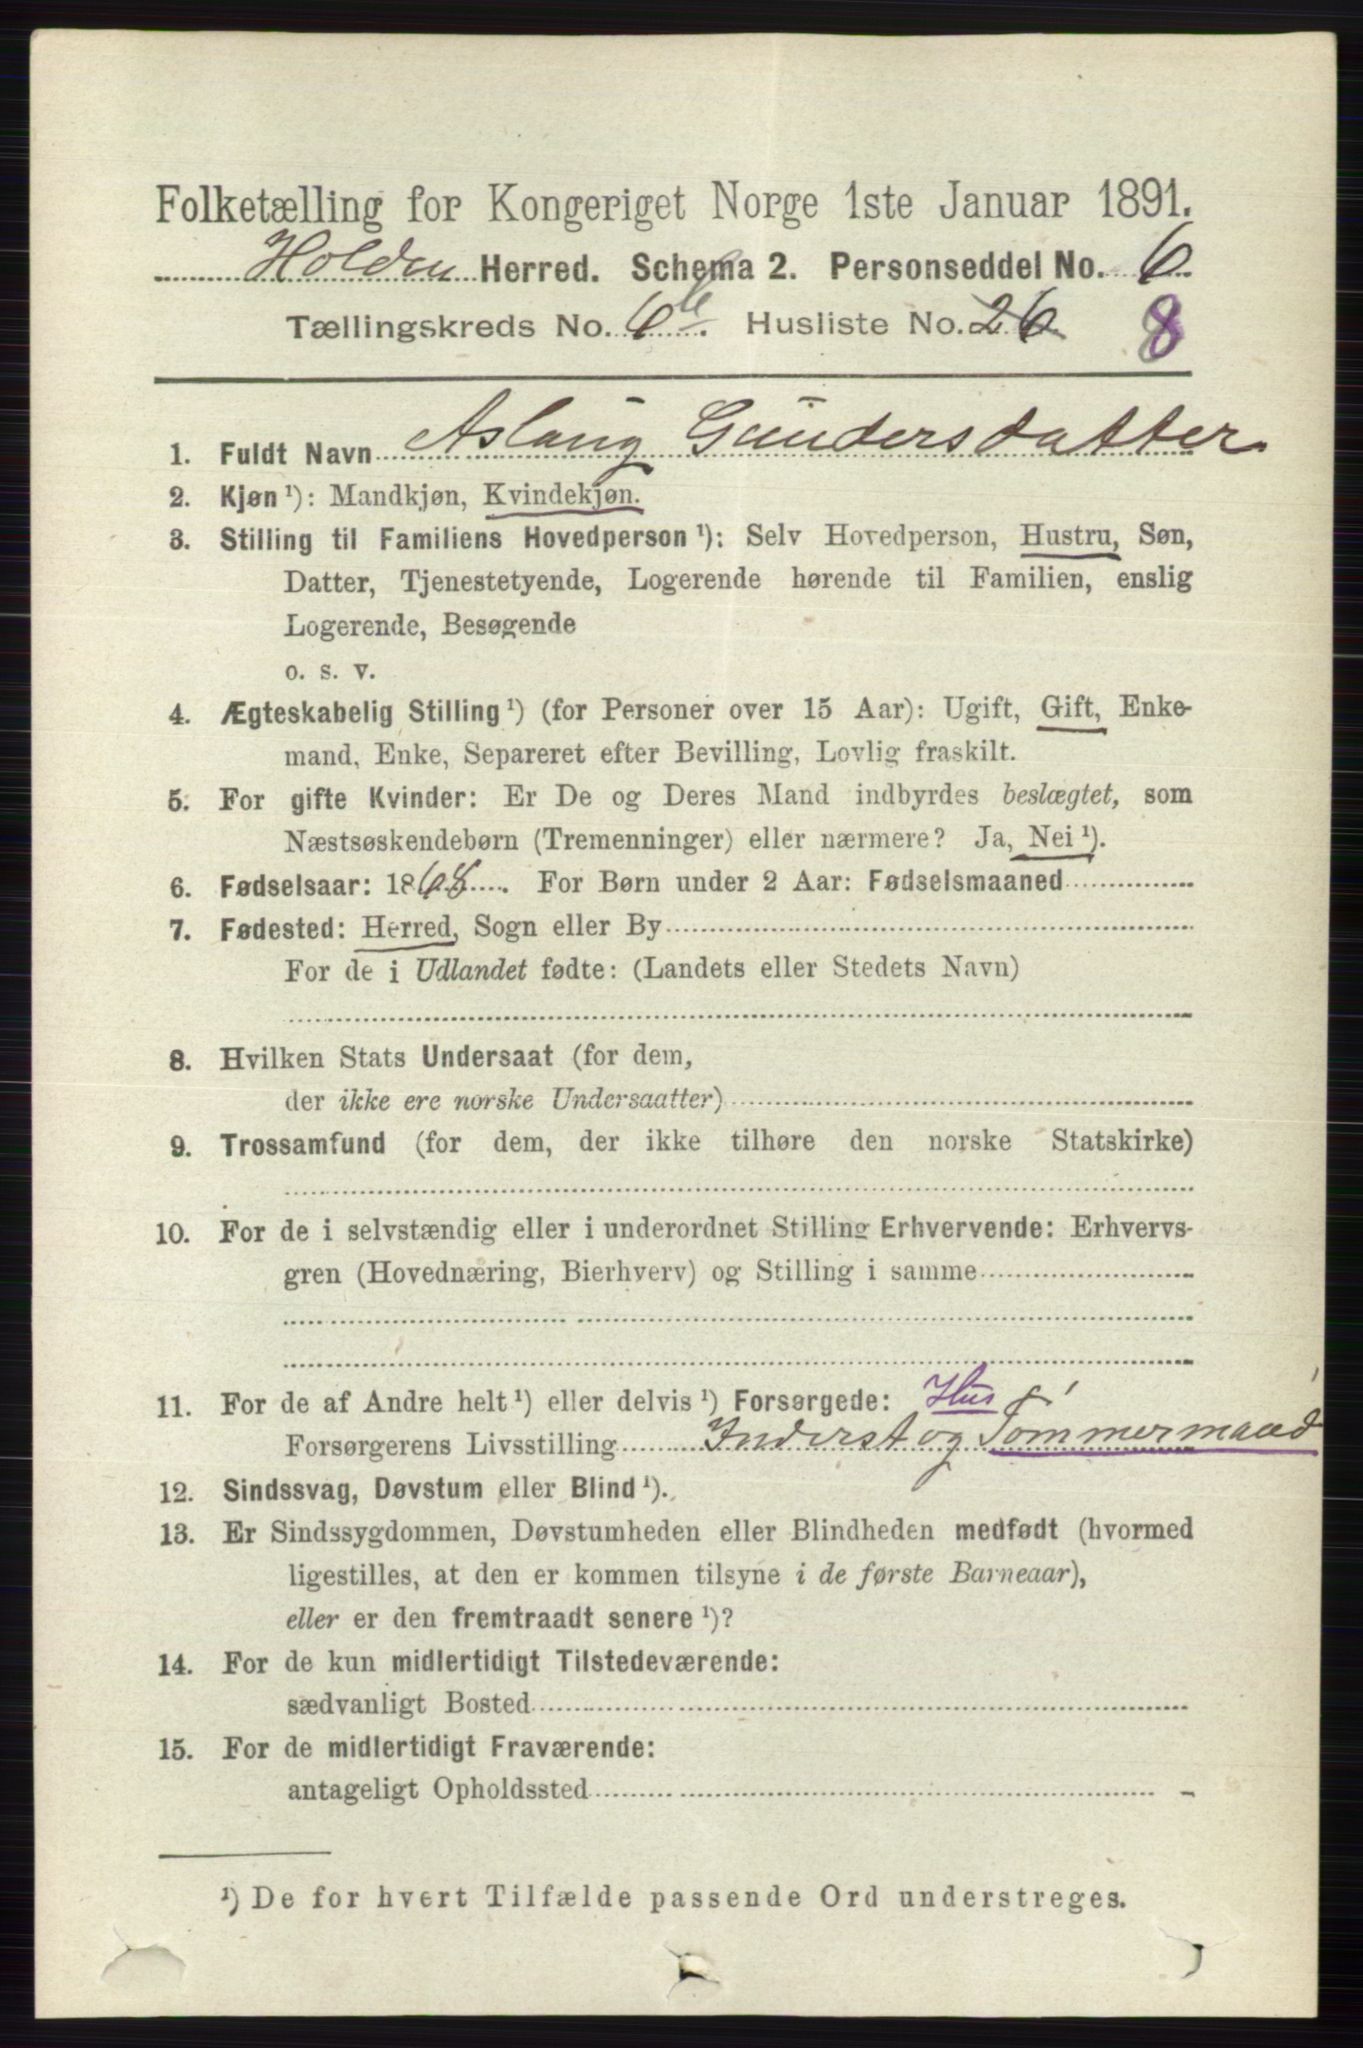 Folketælling for Kongeriget Norge 1ste Januar 1891.
Holden Herred. Schema 2. Personseddel No. 6
Tællingskreds No. 6 b. Husliste No. 26 8
1. Fuldt Navn Aslaug Gundersdatter
2. Kjøn ¹): Mandkjøn, Kvindekjøn.
3. Stilling til Familiens Hovedperson ¹): Selv Hovedperson, Hustru, Søn,
Datter, Tjenestetyende, Logerende hørende til Familien, enslig
Logerende, Besøgende
o. s. v.
4. Ægteskabelig Stilling ¹) (for Personer over 15 Aar): Ugift, Gift, Enke-
mand, Enke, Separeret efter Bevilling, Lovlig fraskilt.
5. For gifte Kvinder: Er De og Deres Mand indbyrdes beslægtet, som
Næstsøskendebørn (Tremenninger) eller nærmere? Ja, Nei ¹).
6. Fødselsaar: 1868. For Børn under 2 Aar: Fødselsmaaned
7. Fødested: Herred, Sogn eller By
For de i Udlandet fødte: (Landets eller Stedets Navn)
8. Hvilken Stats Undersaat (for dem,
der ikke ere norske Undersaatter)
9. Trossamfund (for dem, der ikke tilhøre den norske Statskirke)
10. For de i selvstændig eller i underordnet Stilling Erhvervende: Erhvervs-
gren (Hovednæring, Bierhverv) og Stilling i samme
11. For de af Andre helt ¹) eller delvis ¹) Forsørgede: Hus
Forsørgerens Livsstilling Inderst og Tömmermand
12. Sindssvag, Døvstum eller Blind ¹).
13. Er Sindssygdommen, Døvstumheden eller Blindheden medfødt (hvormed
ligestilles, at den er kommen tilsyne i de første Barneaar),
eller er den fremtraadt senere ¹)?
14. For de kun midlertidigt Tilstedeværende:
sædvanligt Bosted
15. For de midlertidigt Fraværende:
antageligt Opholdssted
¹) De for hvert Tilfælde passende Ord understreges.